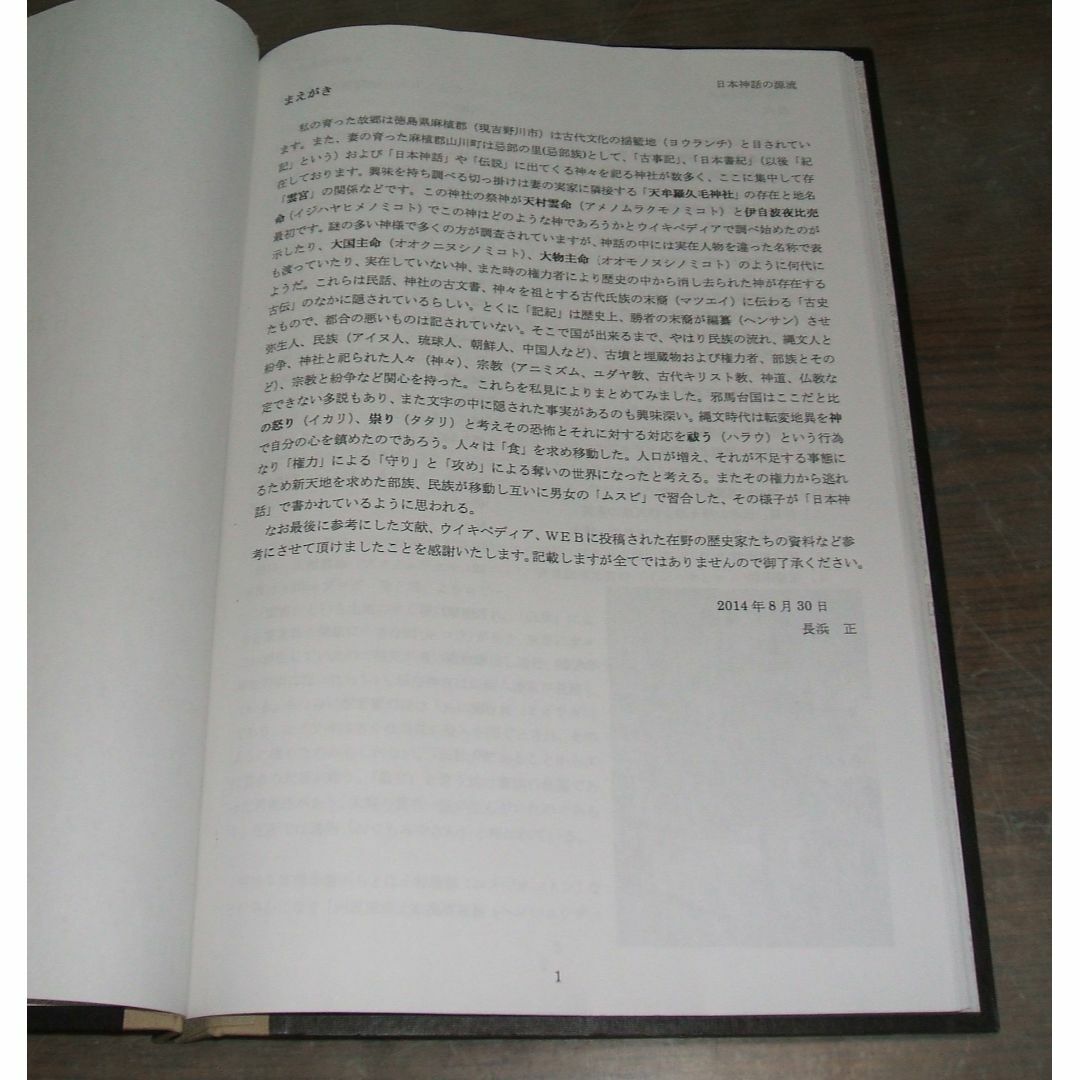 日本神話の源流
まえがき
私の育った故郷は徳島県麻植郡（現吉野川市）は古代文化の揺籃地（ヨウランチ）と目されてい
ます。また、妻の育った麻植郡山川町は忌部の里(忌部族)として、「古事記」、「日本書紀」（以後「紀
記」という）および「日本神話」や「伝説」に出てくる神々を祀る神社が数多く、ここに集中して存
在しております。興味を持ち調べる切っ掛けは妻の実家に隣接する「天牟羅久毛神社」の存在と地名
「雲宮」の関係などです。この神社の祭神が天村雲命（アメノムラクモノミコト）と伊自波夜比売
命（イジハヤヒメノミコト）でこの神はどのような神であろうかとウイキペディアで調べ始めたのが
最初です。謎の多い神様で多くの方が調査されていますが、神話の中には実在人物を違った名称で表
示したり、大国主命（オオクニヌシノミコト）、大物主命（オオモノヌシノミコト）のように何代に
も渡っていたり、実在していない神、また時の権力者により歴史の中から消し去られた神が存在する
ようだ。これらは民話、神社の古文書、神々を祖とする古代氏族の末裔（マツエイ）に伝わる「古史
古伝」のなかに隠されているらしい。とくに「記紀」は歴史上、勝者の末裔が編纂（ヘンサン）させ
たもので、都合の悪いものは記されていない。そこで国が出来るまで、やはり民族の流れ、縄文人と
弥生人、民族（アイヌ人、琉球人、朝鮮人、中国人など）、古墳と埋蔵物および権力者、部族とその
紛争、神社と祀られた人々（神々）、宗教（アニミズム、ユダヤ教、古代キリスト教、神道、仏教な
ど）、宗教と紛争など関心を持った。これらを私見によりまとめてみました。邪馬台国はここだと比
定できない多説もあり、また文字の中に隠された事実があるのも興味深い。縄文時代は転変地異を神
の怒り（イカリ）、祟り（タタリ）と考えその恐怖とそれに対する対応を祓う（ハラウ）という行為
で自分の心を鎮めたのであろう。人々は「食」を求め移動した。人口が増え、それが不足する事態に
なり「権力」による「守り」と「攻め」による奪いの世界になったと考える。またその権力から逃れ
るため新天地を求めた部族、民族が移動し互いに男女の「ムスビ」で習合した、その様子が「日本神
話」で書かれているように思われる。
なお最後に参考にした文献、ウイキペディア、ＷＥＢに投稿された在野の歴史家たちの資料など参
考にさせて頂けましたことを感謝いたします。記載しますが全てではありませんので御了承ください。
2014年8月30日
長浜　正
1